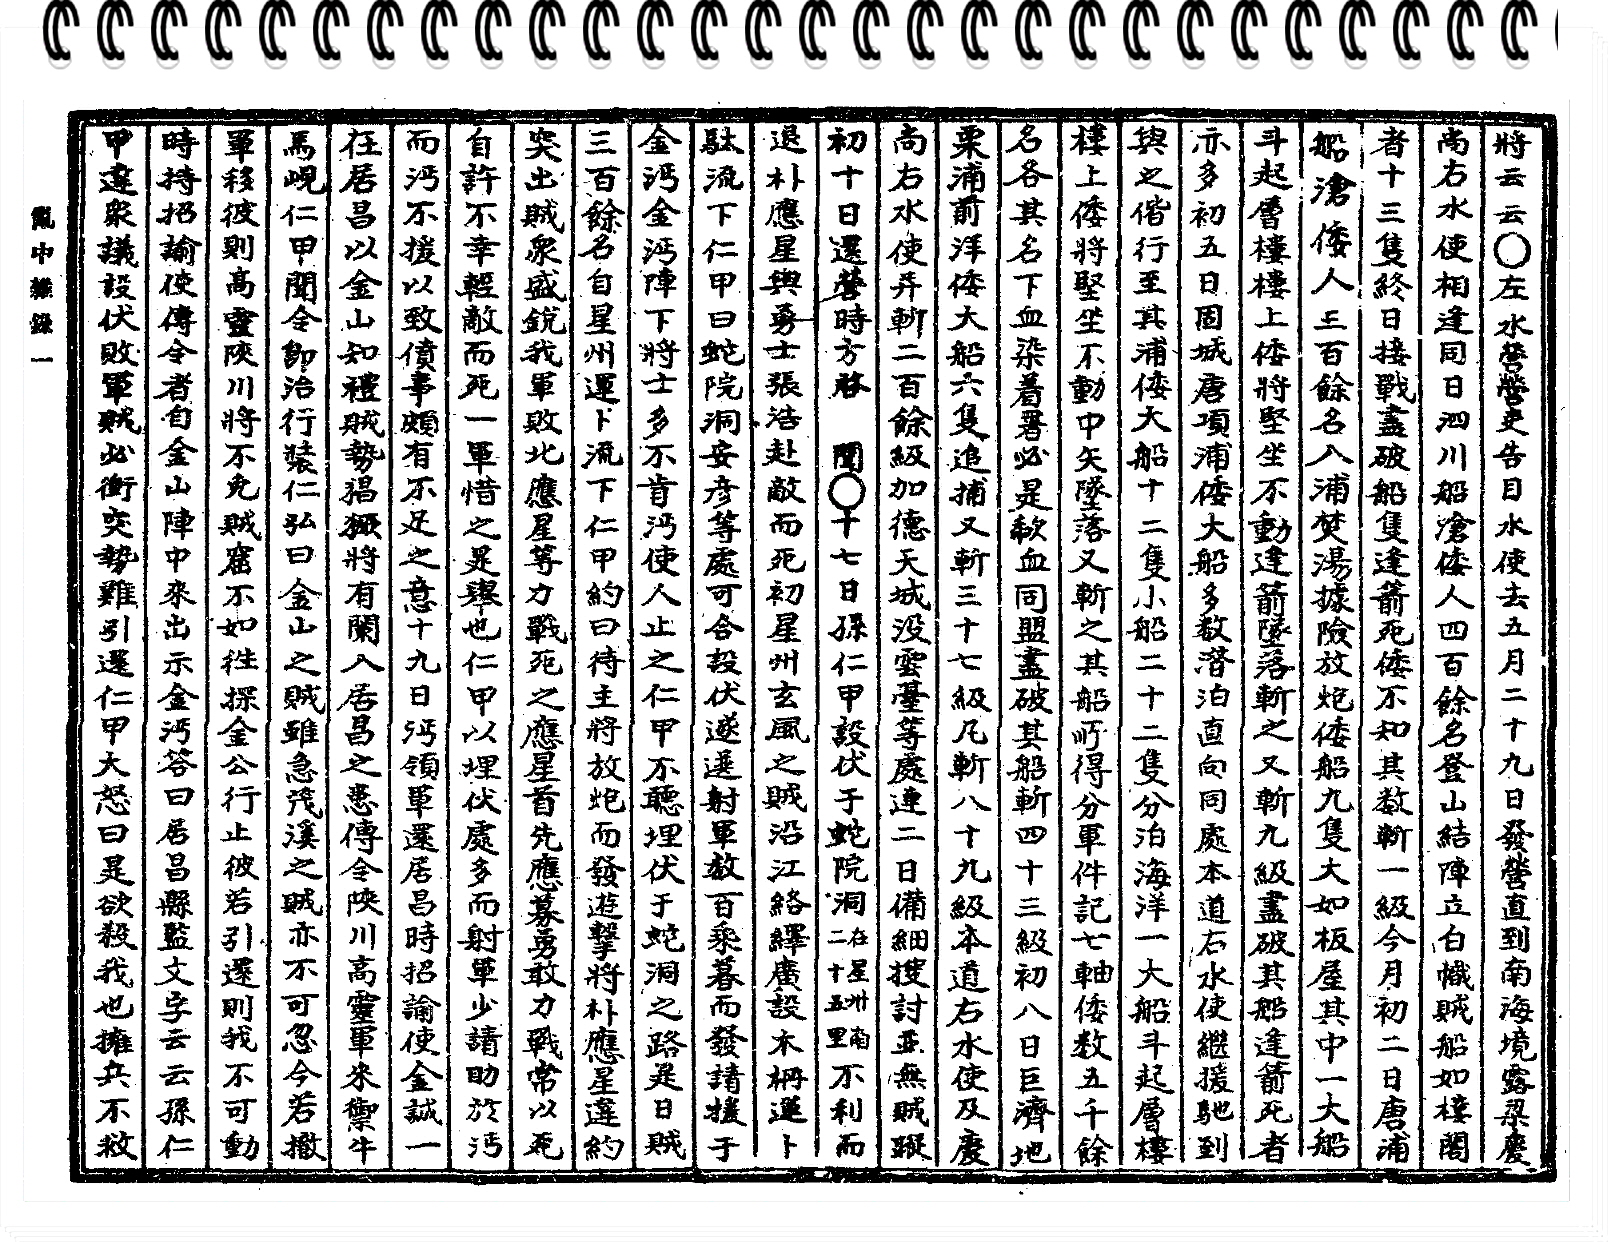 將云云○左水營營吏告目水使去五月二十九日發營直到南海境露梁慶
尚右水使相逢同日泗川船滄倭人四百餘名登山結陣立白幟賊船如樓閣
者十三隻終日接戰盡破船隻逢箭死倭不知其数斬一級今月初二日唐浦
船滄倭人三百餘名入浦焚湯據險放炮倭船九隻大如板屋其中一大船
斗起層樓樓上倭將堅坐不動逢箭墜落斬之又斬九級盡破其船逢箭死者
亦多初五日固城唐項浦倭大船多数落泊直向同處本道右水使繼援馳到
與之偕行至其浦倭大船十二隻小船二十二隻分泊海洋一大船斗起層樓
樓上倭將堅坐不動中矢墜落又斬之其船所得分軍件記七軸倭数五千餘
名各其名下血染着署必是歃血同盟盡破其船斬四十三級初八日巨濟地
栗浦前洋倭大船六隻追捕又斬三十七級凡斬八十九級本道右水使及慶
尚右水使并斬二百餘級加德天城没雲臺等處連二日備細搜討並無賊蹤
初十日還營時方啓 聞○十七日孫仁甲設伏于蛇院洞在星州南二十五里不利而
退朴應星與勇士張浩赴敵而死初星州玄風之賊沿江絡繹廣設木柵運卜
馱流下仁甲曰蛇院洞安彦等處可合設伏遂選射軍数百乘暮而發請援于
金沔金沔陣下將士多不肯沔使人止之仁甲不聽埋伏于蛇洞之路是日賊
三百餘名自星州運卜流下仁甲約曰待主將放炮而發遊擊將朴應星違約
突出賊衆盛銳我軍敗北應星等力戰死之應星首先應募勇敢力戰常以死
自許不幸輕敵而死一軍惜之是舉也仁甲以埋伏處多而射軍少請助於沔
而沔不援以致僨事頗有不足之意十九日沔領軍還居昌時招諭使金誠一
在居昌以金山知禮賊勢猖獗將有闌入居昌之患傳令陜川高靈軍來禦牛
馬峴仁甲聞令卽治行裝仁弘曰金山之賊雖急茂溪之賊亦不可忽今若撤
軍移彼則高靈陜川將不免賊窟不如往探金公行止彼若引還則我不可動
時持招諭使傳令者自金山陣中來出示金沔答曰居昌縣監文字云云孫仁
甲違衆議設伏敗軍賊必衝突勢難引還仁甲大怒曰是欲殺我也擁兵不救
亂中雜錄一